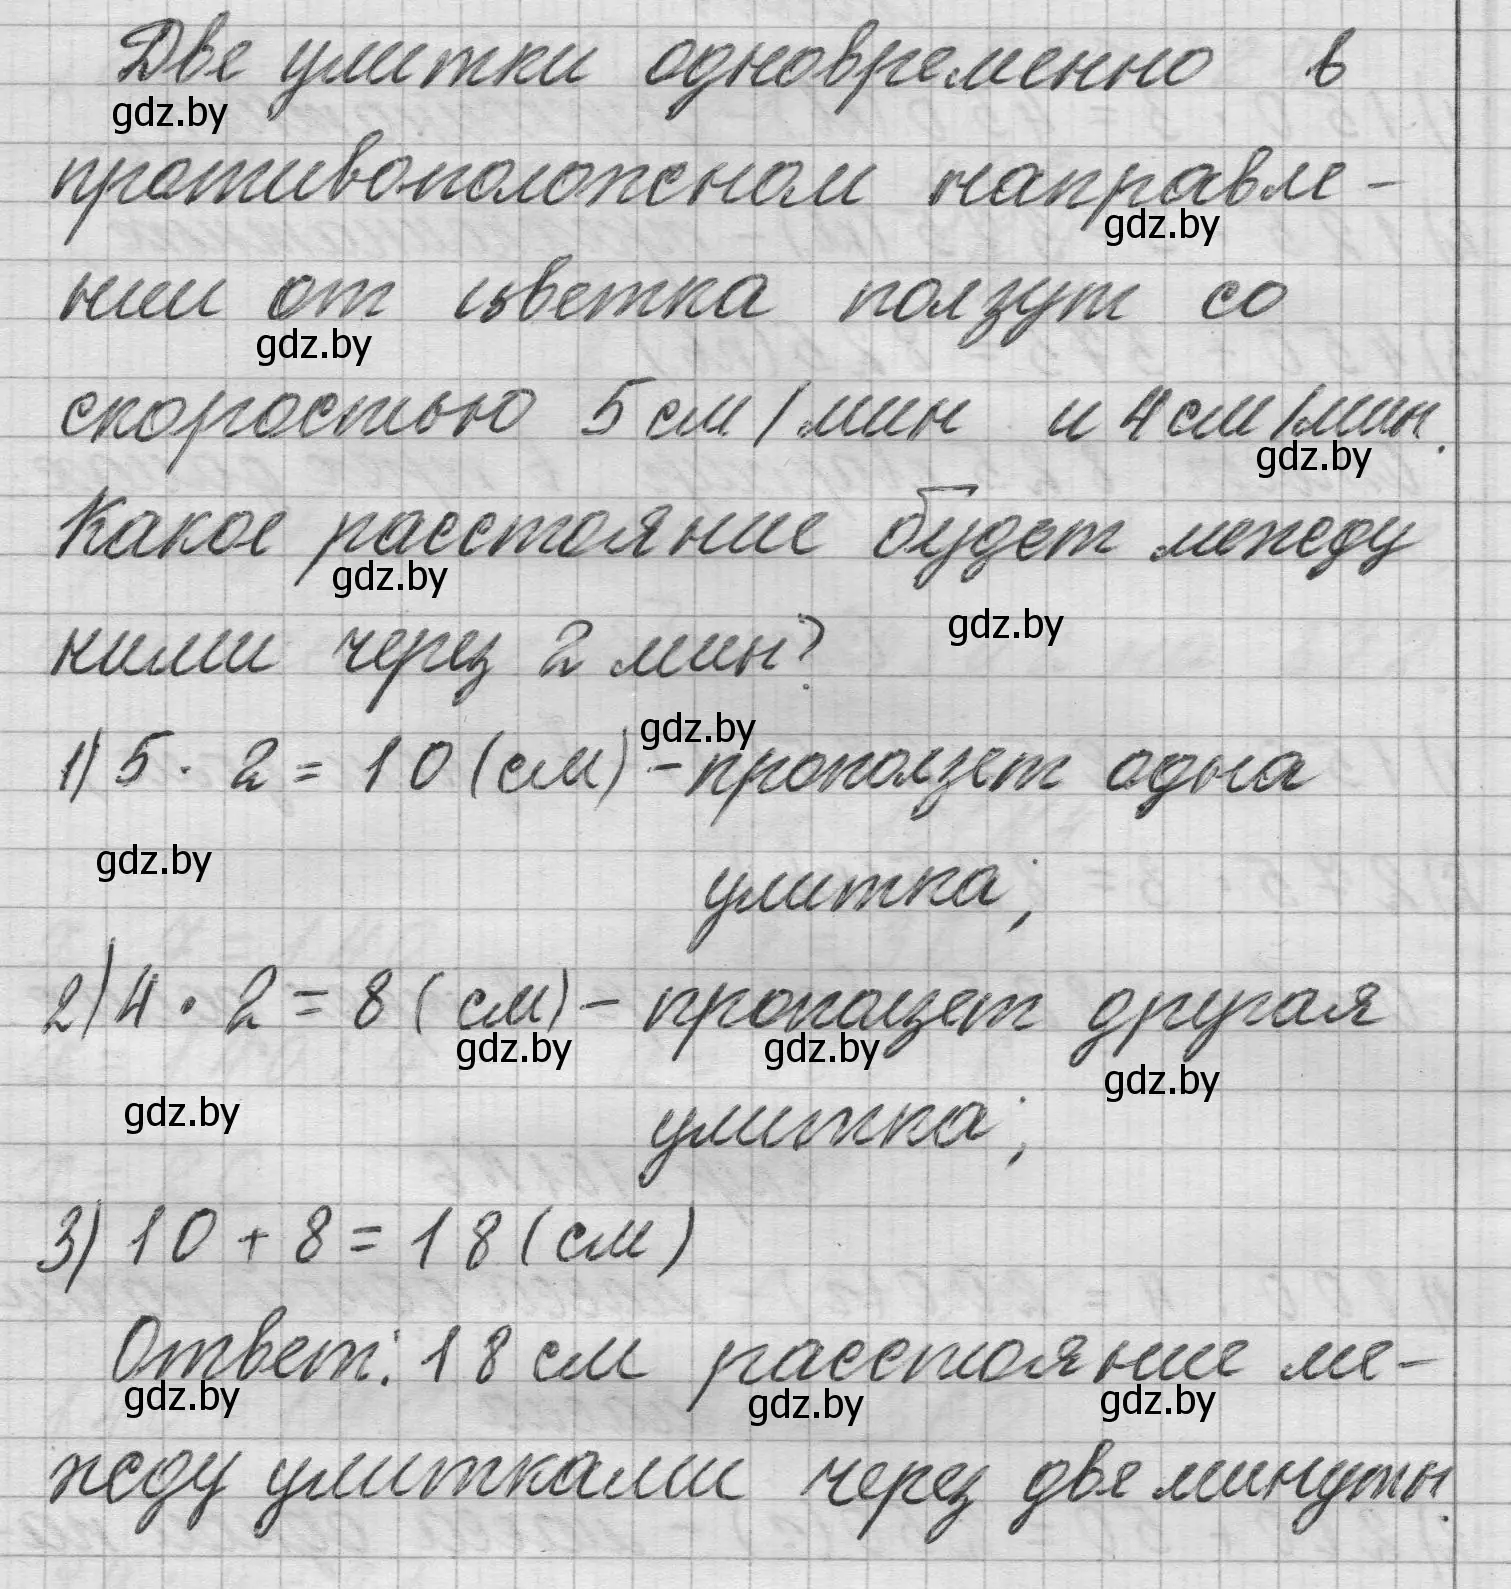 Две улитки одновременно в
gdz.by
противоположеном направле-
gdz.by
нии от цветка ползут со
gdz.by
скоростью 5 см/мин и 4 см/мин.
gdz.by
Какое расстояние будет между
gdz.by
gdz.by
ними через 2 мин?
gdz.by
1) 5 · 2 = 10 (см) - проползет одна
gdz.by
улитка;
2) 4 · 2 = 8 (см) - проползет другая
gdz.by gdz.by
gdz.by
gdz.by
улитка;
3) 10 + 8 = 18 (см)
Ответ: 18 см расстояние ме-
gdz.by gdz.by gdz.by
жеду улитками через две минуты.